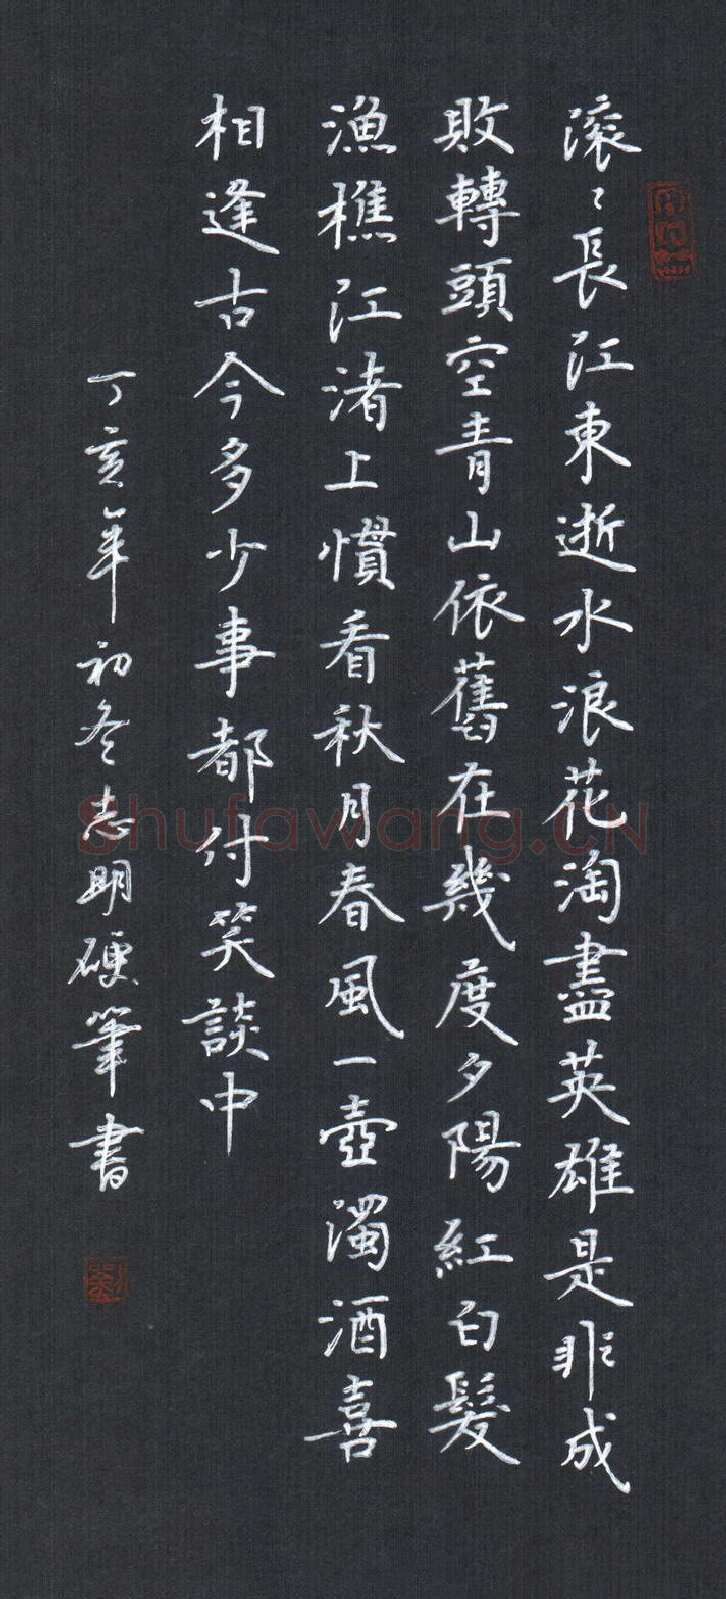 滾〻長江東逝水浪花淘盡英雄是非成
敗轉頭空青山依舊在幾度夕陽紅白髮
漁樵江渚上慣看秋月春風一壺濁酒喜
相逢古今多少事都付笑談中
丁亥年初冬志明硬筆書
劉
Shufawang.CN